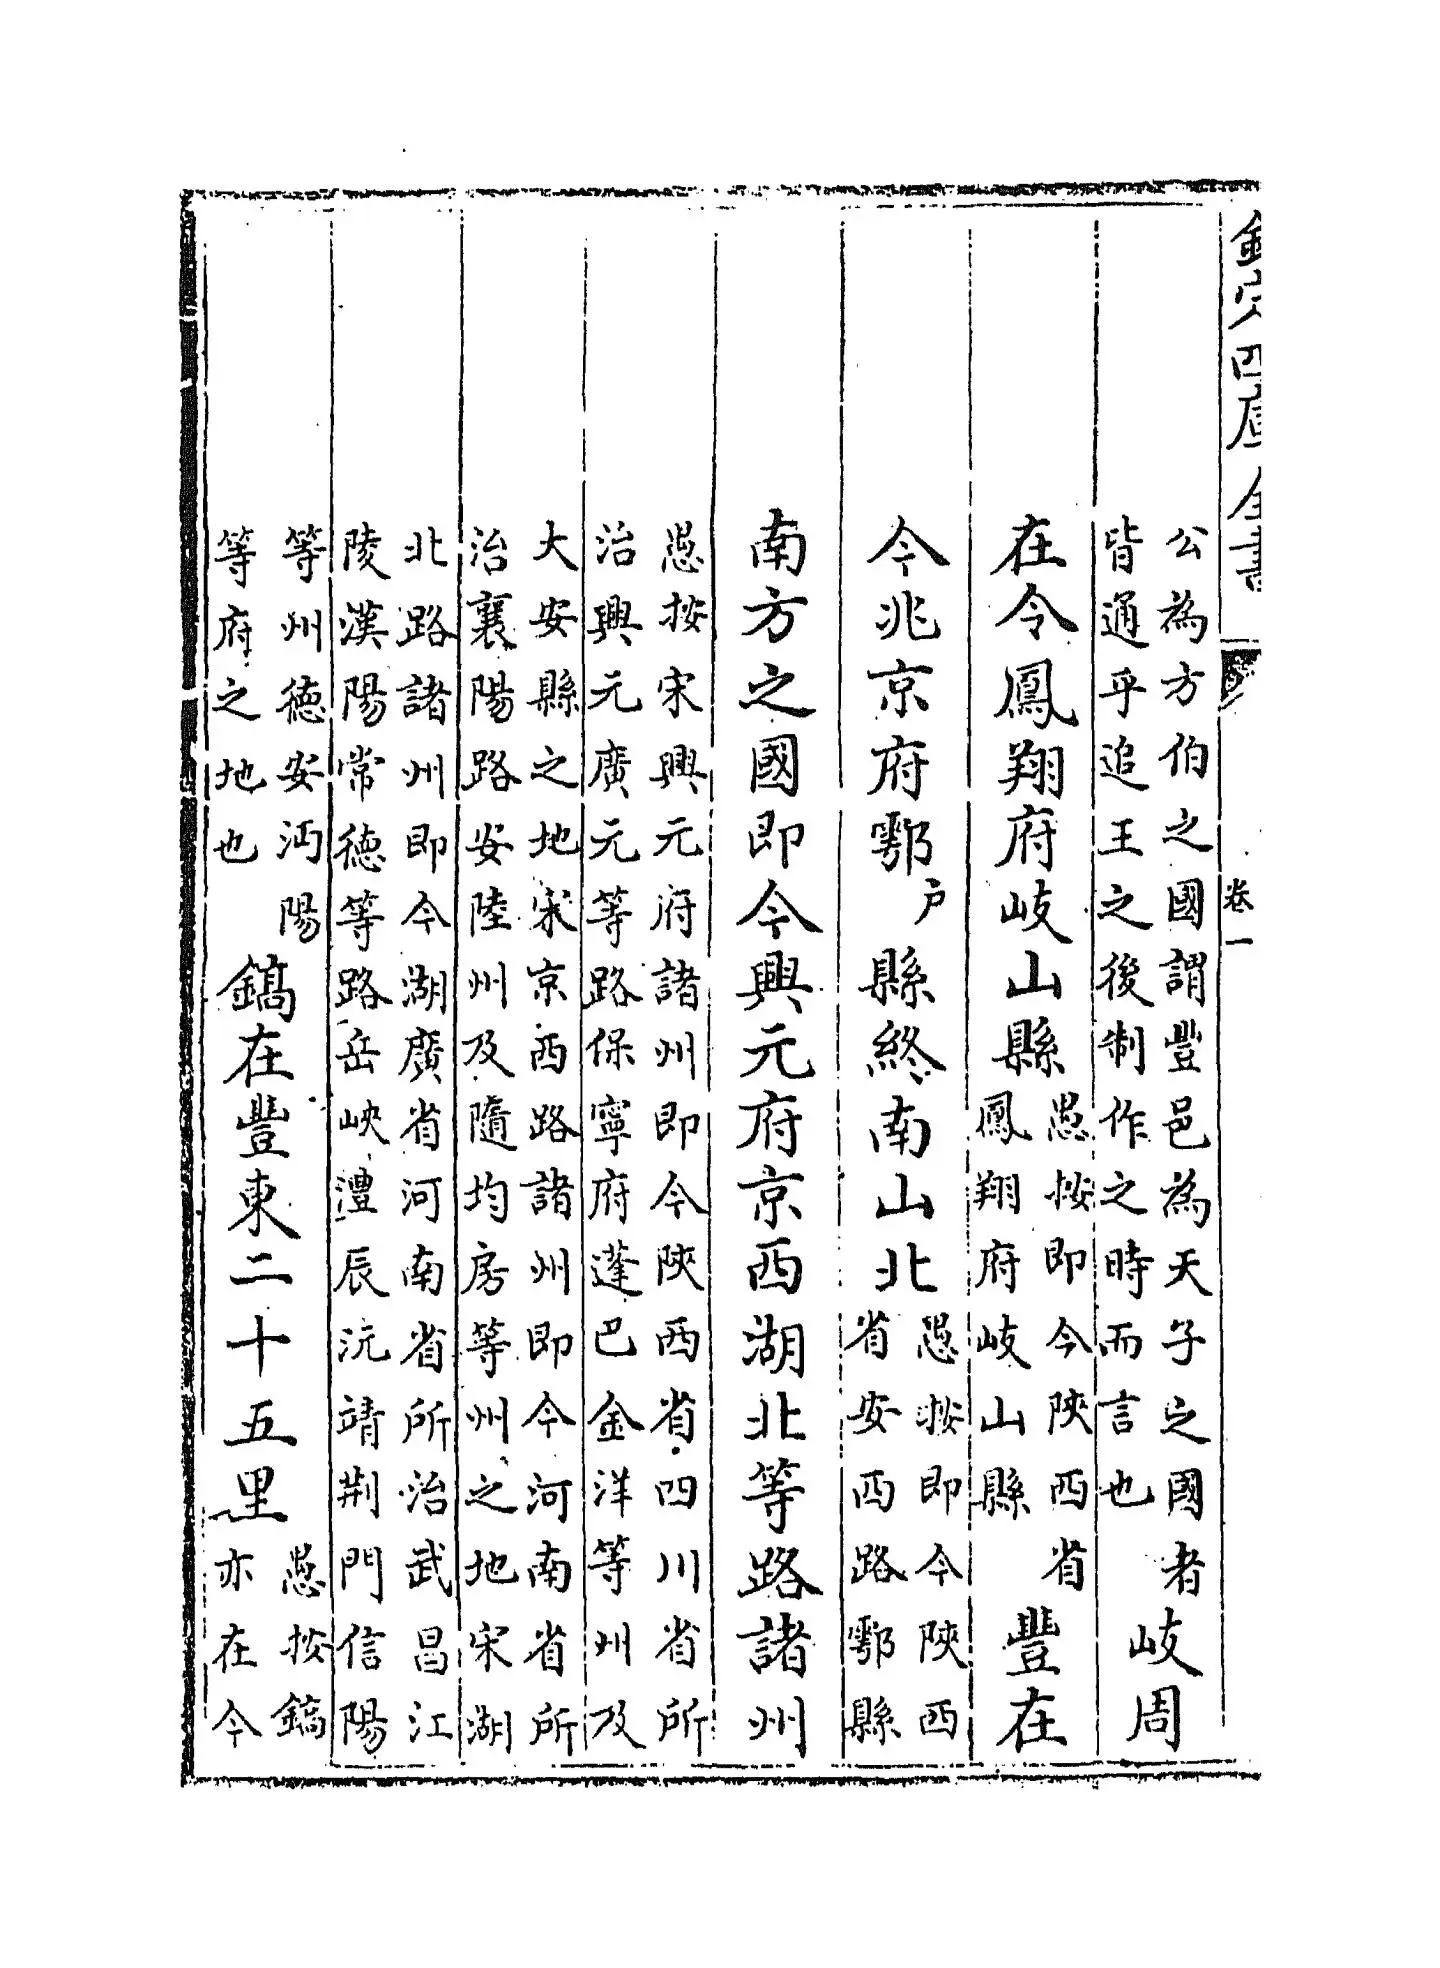 欽定四庫全書
卷一
公為方伯之國謂豐邑為天子之國者
皆通乎追王之後制作之時而言也
岐周
在令鳳翔府岐山縣
愚按即今陜西省
鳳翔府岐山縣
豐在
今兆京府鄠户縣終南山北
愚按即今陜西
省安西路鄠縣
南方之國即今興元府京西湖北等路諸州
愚按宋興元府諸州即今陜西省四川省所
治興元廣元等路保寧府蓬巴金洋等州及
大安縣之地宋京西路諸州即今河南省所
治襄陽路安陸州及隨均房等州之地宋湖
北路諸州即今湖廣省河南省所治武昌江
陵漢陽常德等路岳峽澧辰沅靖荆門信陽
等州德安沔陽
等府之地也
鎬在豐東二十五里
愚按鎬
亦在今